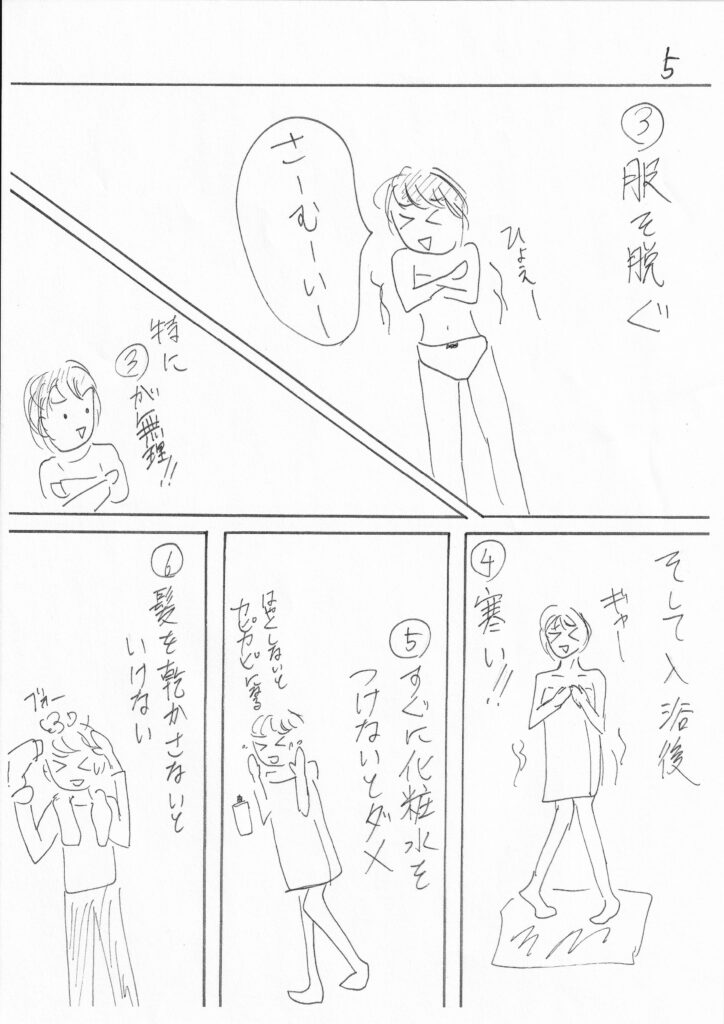 5
③服を脱ぐ
ひょえー
さーむーいー
特に
③が無理!!
そして入浴後
ギャー
④寒い!!
⑤すぐに化粧水を
つけないとダメ
はやくしないと
カピカピに寄る
⑥髪を乾かさないと
いけない
ブオー